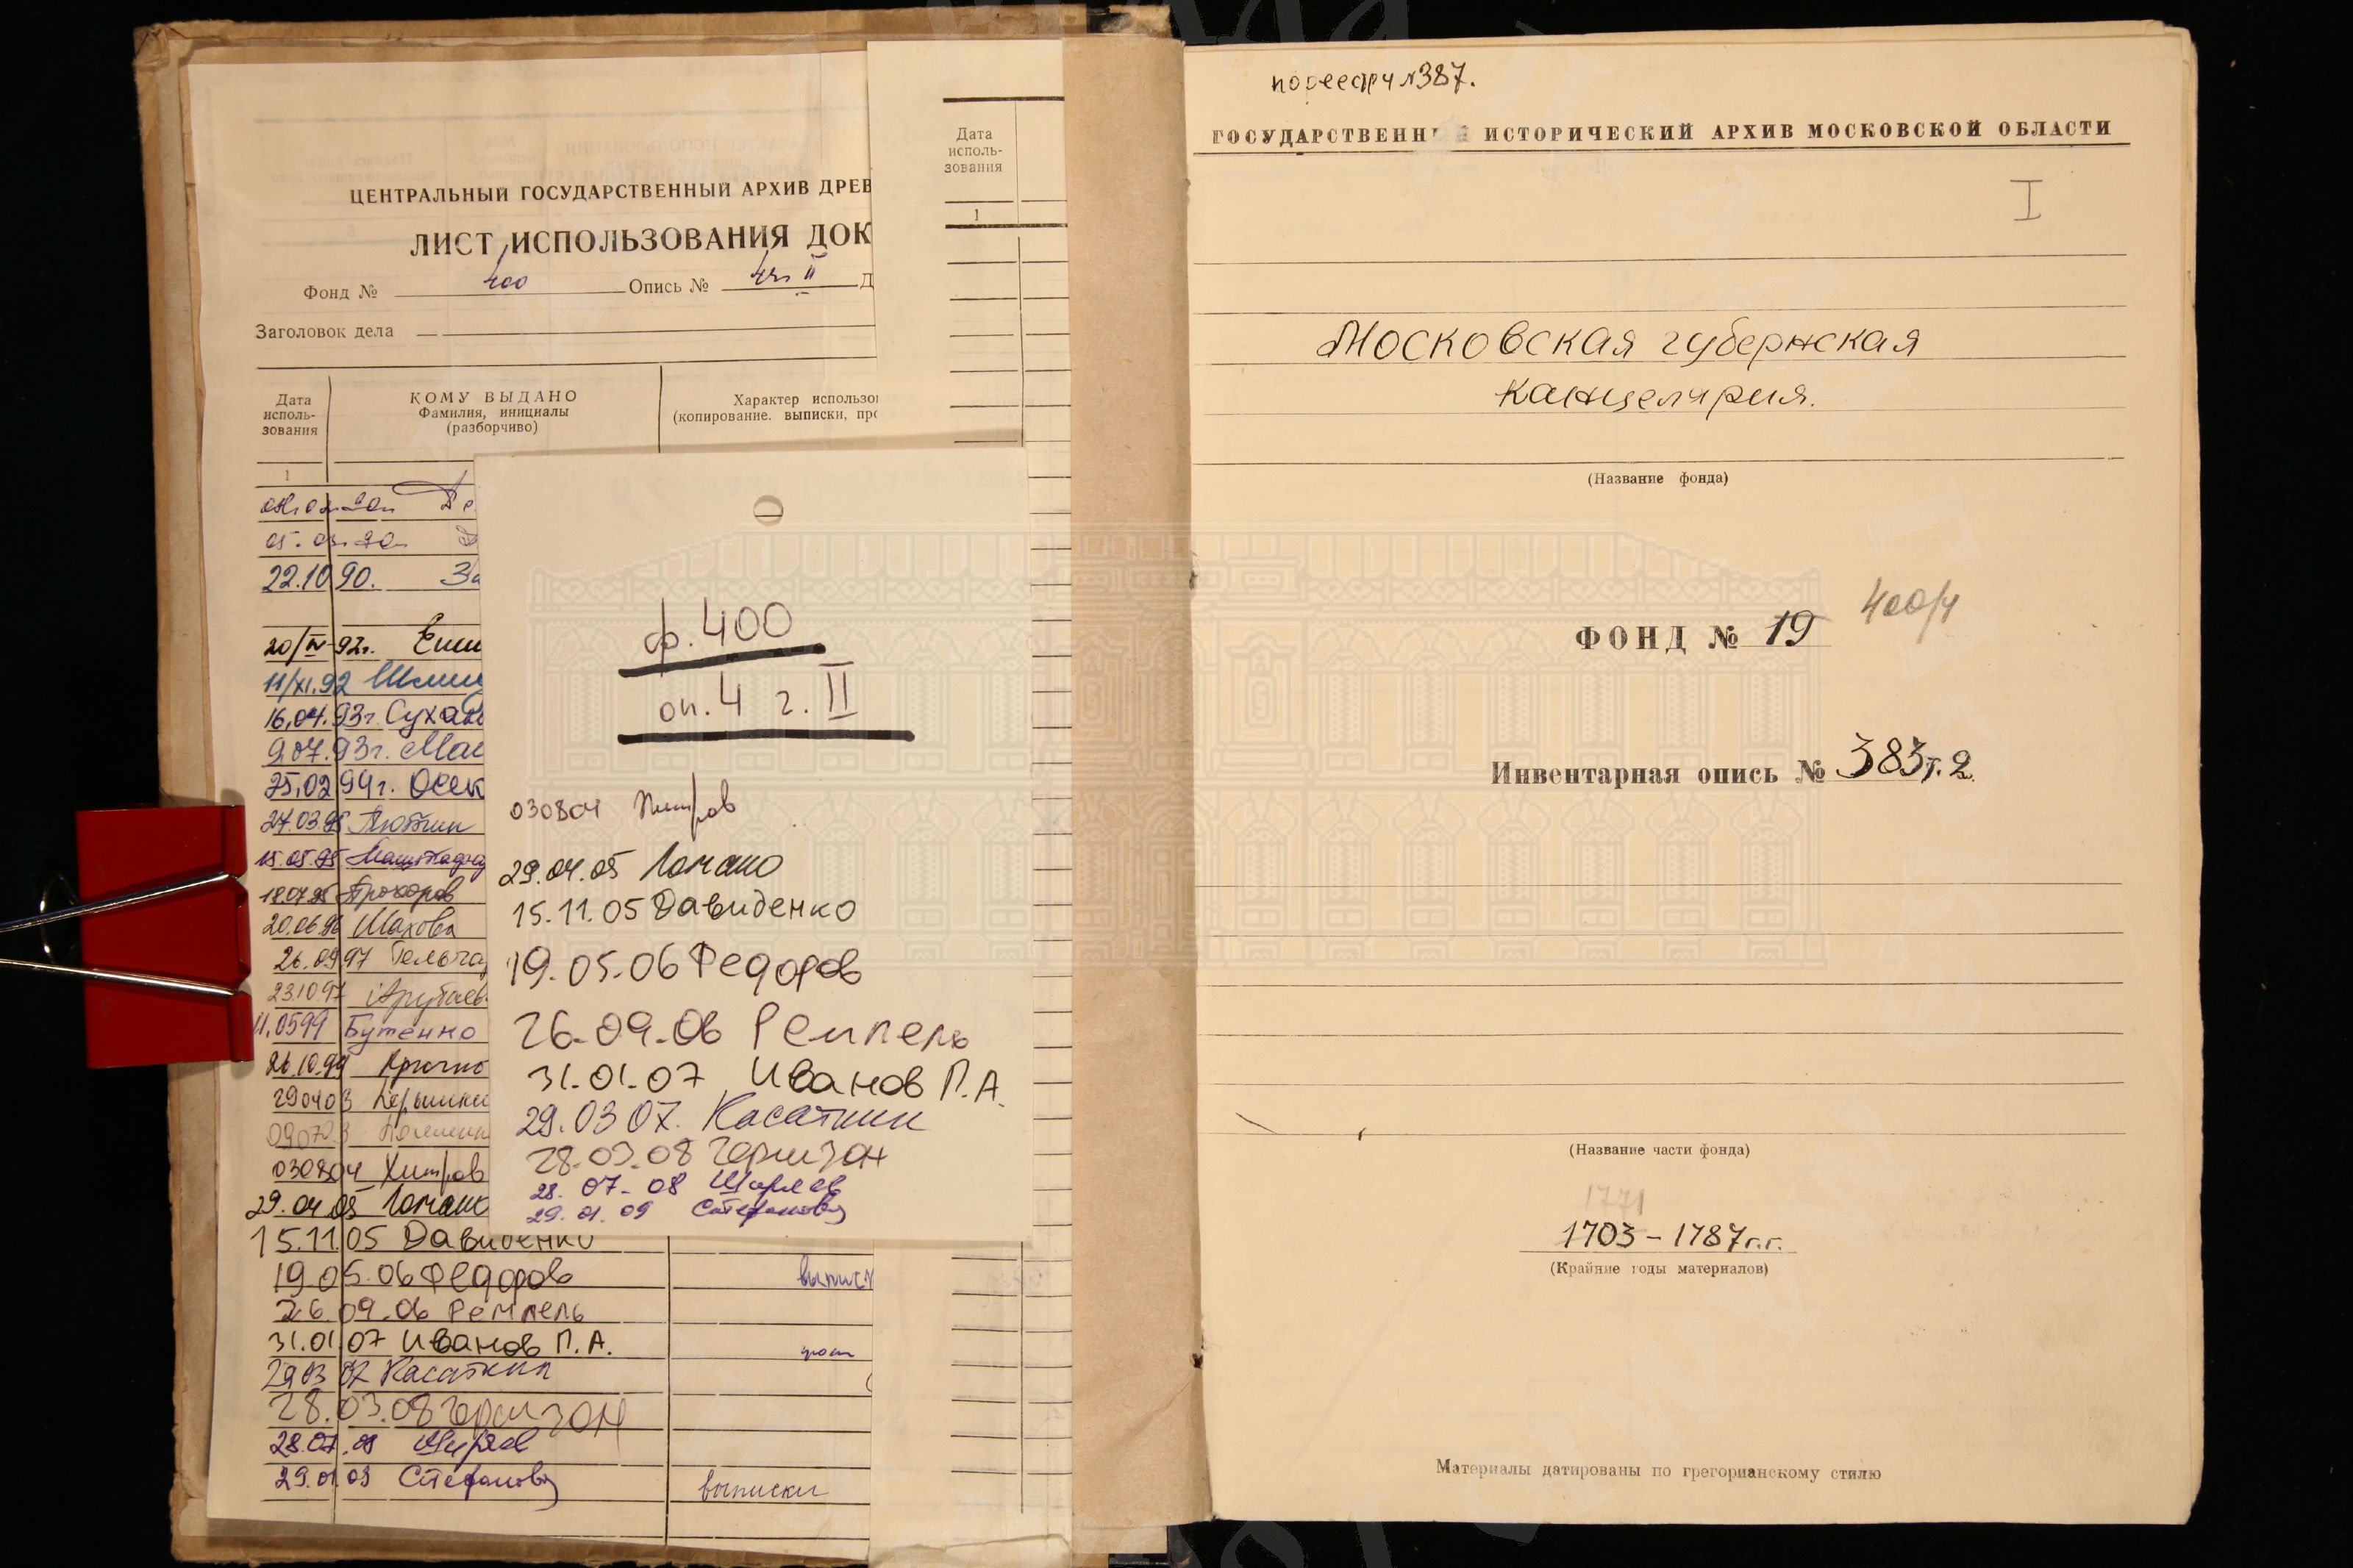 ЦЕНТРАЛЬНЫЙ ГОСУДАРСТВЕННЫЙ АРХИВ ДРЕВ
ЛИСТ ИСПОЛЬЗОВАНИЯ ДОК
Фонд № 400 Опись № 4 ч. II Д
Заголовок дела
Дата исполь-зования
КОМУ ВЫДАНО
Фамилия, инициалы
(разборчиво)
Характер использо
(копирование. выписки, про
1
22.10.90. За
20/IV-92г.
11/XI.92
16.04.93г. Суха
9.07.93г. Ма
25.02.94г. Осек
27.03.95
15.05.95
Прохоров
20.06.96 Шахова
26.09.97
23.10.97
11.0599 Бутенко
26.10.99
290403
030804 Хитров
29.04.05
15.11.05 Давиденко
19.05.06 Федоров
выписк
26.09.06 Ремпель
31.01.07 Иванов П.А.
29.03.07 Касаткин
28.03.08 Гермизон
28.07.08 Ширяев
29.01.09 Степанова
выписки
ф. 400
оп. 4 г. II
030804 Хитров
29.04.05
15.11.05 Давиденко
19.05.06 Федоров
26.09.06 Ремпель
31.01.07 Иванов П.А.
29.03 07. Касаткин
28.03.08 Гермизон
28. 07-08 Ширяев
29. 01. 09 Степанова
Дата
исполь-
зования
1
по реестру №387.
ГОСУДАРСТВЕНН ИСТОРИЧЕСКИЙ АРХИВ МОСКОВСКОЙ ОБЛАСТИ
I
Московская губернская
канцелярия.
(Название фонда)
400/4
ФОНД № 19
Инвентарная опись № 383 т. 2.
(Название части фонда)
1771
1703 – 1787 г.г.
(Крайние годы материалов)
Материалы датированы по грегорианскому стилю